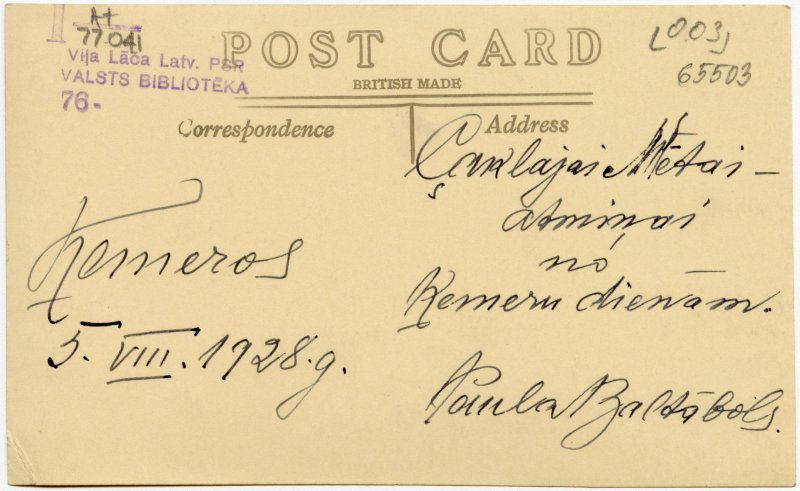 A+
77.041
Viļa Lāča Latv. PSR
VALSTS BIBLIOTĒKA
76-
POST CARD
BRITISH MADE
Correspondence
Address
65503
Ķemeros
5. VIII. 1928.g.
Mētai –
atmiņai
no
Ķemeru dienām.
Paula Baltābols.